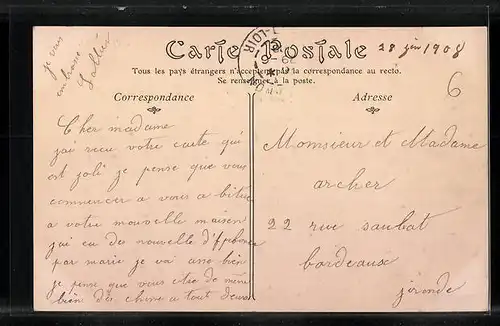 je vous
embrasse
Carte Postale
28 juin 1908
Tous les pays étrangers n'acceptent pas la correspondance au recto.
Se renseigner à la poste.
6
Correspondance
Cher madame
jai recu votre carte qui
est joli je pense que vous
commencer a vous a bituer
a votre mouvelle maisen
jai eu des nouvelle
par marie je vai asse bien
je pense que vous etre de mème
bien des chose a tout deux
Adresse
Monsieur et Madame
archer
22 rue saubat
bordeaux
jironde